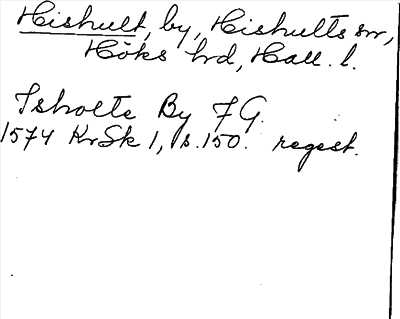 Hishult, by, Hishults sn,
Höks hrd, Hall. l.
Isholte By FG.
1574 KrSk 1, s. 150. regest.